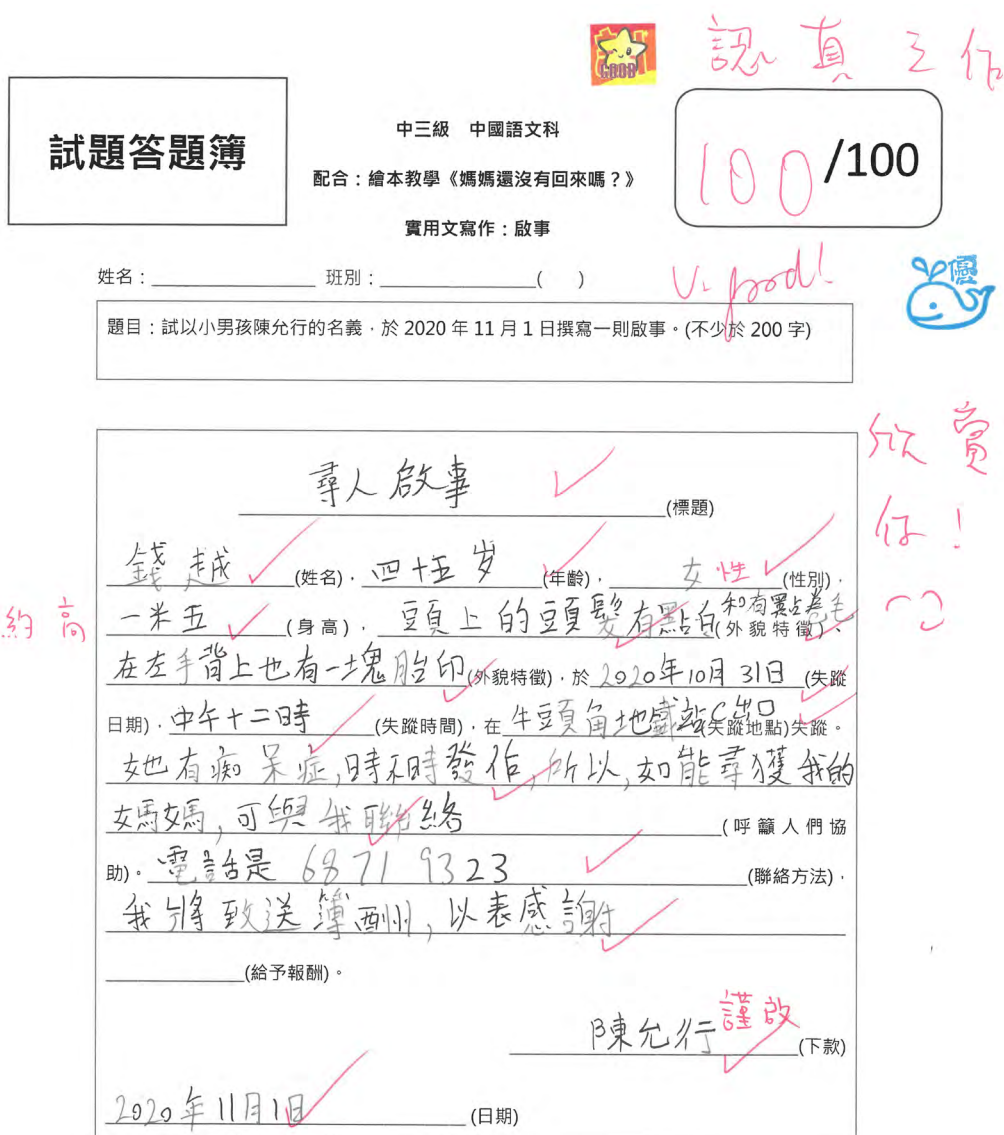 GOOD
認真工作
試題答題簿
中三級 中國語文科
配合：繪本教學《媽媽還沒有回來嗎？》
實用文寫作：啟事
100/100
姓名：________ 班別：________( )
V. good!
優
題目：試以小男孩陳允行的名義，於 2020 年 11 月 1 日撰寫一則啟事。(不少於 200 字)
欣賞你！
尋人啟事(標題)
錢越(姓名)，四十五岁(年齡)，女性(性別)，
約高一米五(身高)，頭上的頭髮有點白和有點卷毛(外貌特徵)、
在左手背上也有一塊胎印(外貌特徵)，於2020年10月31日(失蹤
日期)，中午十二時(失蹤時間)，在牛頭角地鐵站C出口(失蹤地點)失蹤。
她有痴呆症,時不時發作,所以,如能尋獲我的
媽媽,可與我聯絡(呼籲人們協
助)。電話是 6871 9323(聯絡方法)，
我將致送簿酬,以表感謝
(給予報酬)。
陳允行謹啟(下款)
2020年11月1日(日期)